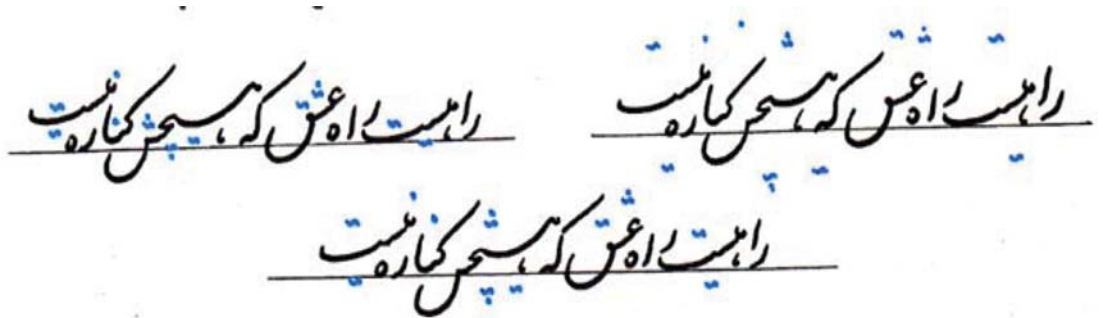 راهیست راه عشق که هیچش کناره نیست
راهیست راه عشق که هیچش کناره نیست
راهیست راه عشق که هیچش کناره نیست